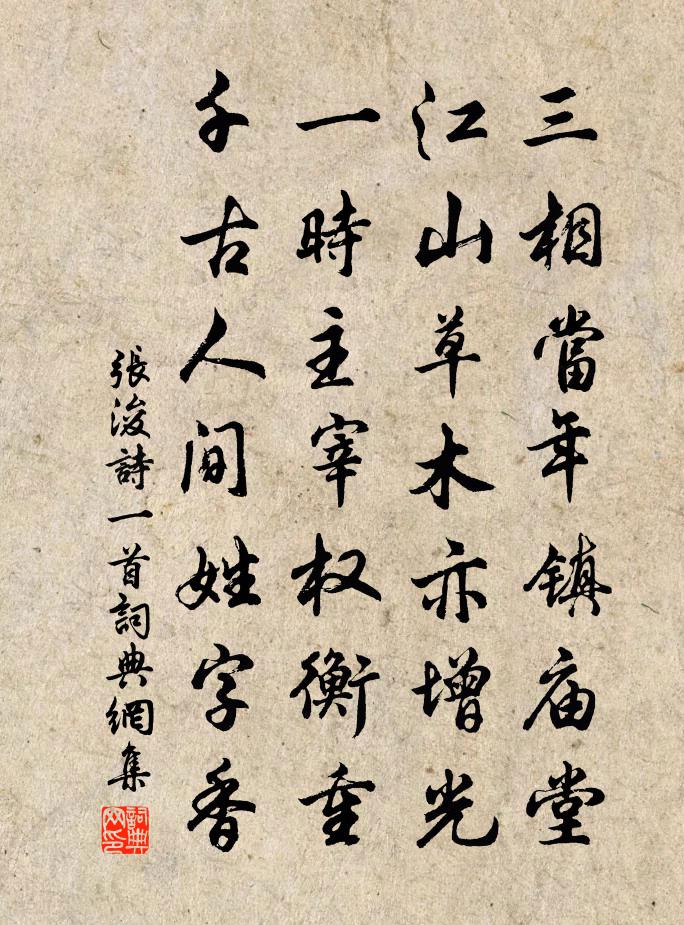 三相當年鎮庙堂
江山草木亦增光
一時主宰权衡重
千古人间姓字香
張浚詩一首詞典網集
詞典网印